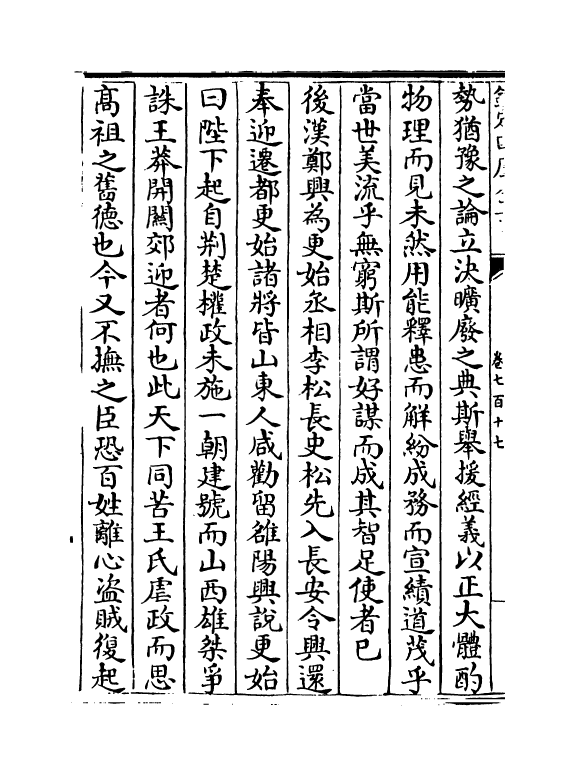 卷七百十七
勢猶豫之論立決曠廢之典斯舉援經義以正大體酌
物理而見未然用能釋患而解紛成務而宣績道茂乎
當世美流乎無窮斯所謂好謀而成其智足使者已
後漢鄭興為更始丞相李松長史松先入長安令興還
奉迎遷都更始諸將皆山東人咸勸留雒陽興說更始
曰陛下起自荆楚權政未施一朝建號而山西雄桀爭
誅王莽開關郊迎者何也此天下同苦王氏虐政而思
髙祖之舊徳也今又不撫之臣恐百姓離心盗賊復起